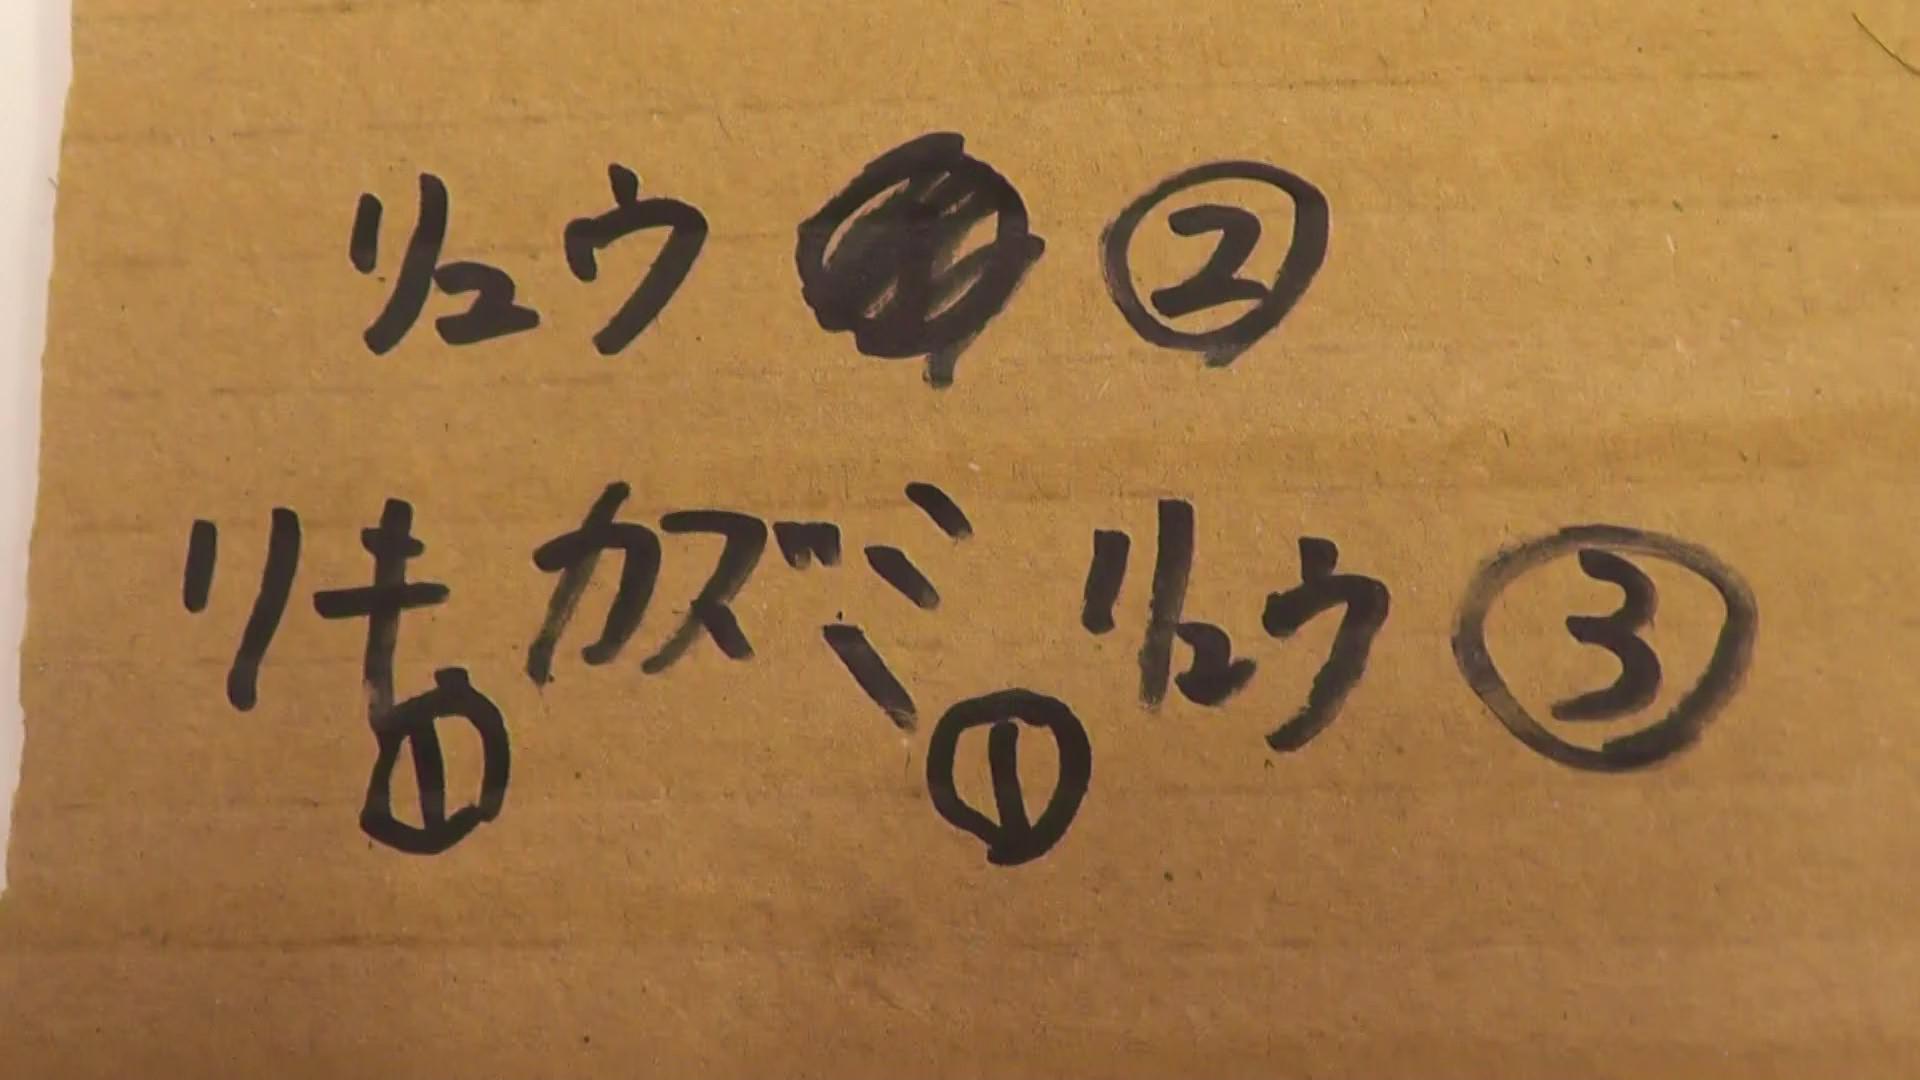 リュウ ②
リキ① カズミ① リュウ ③